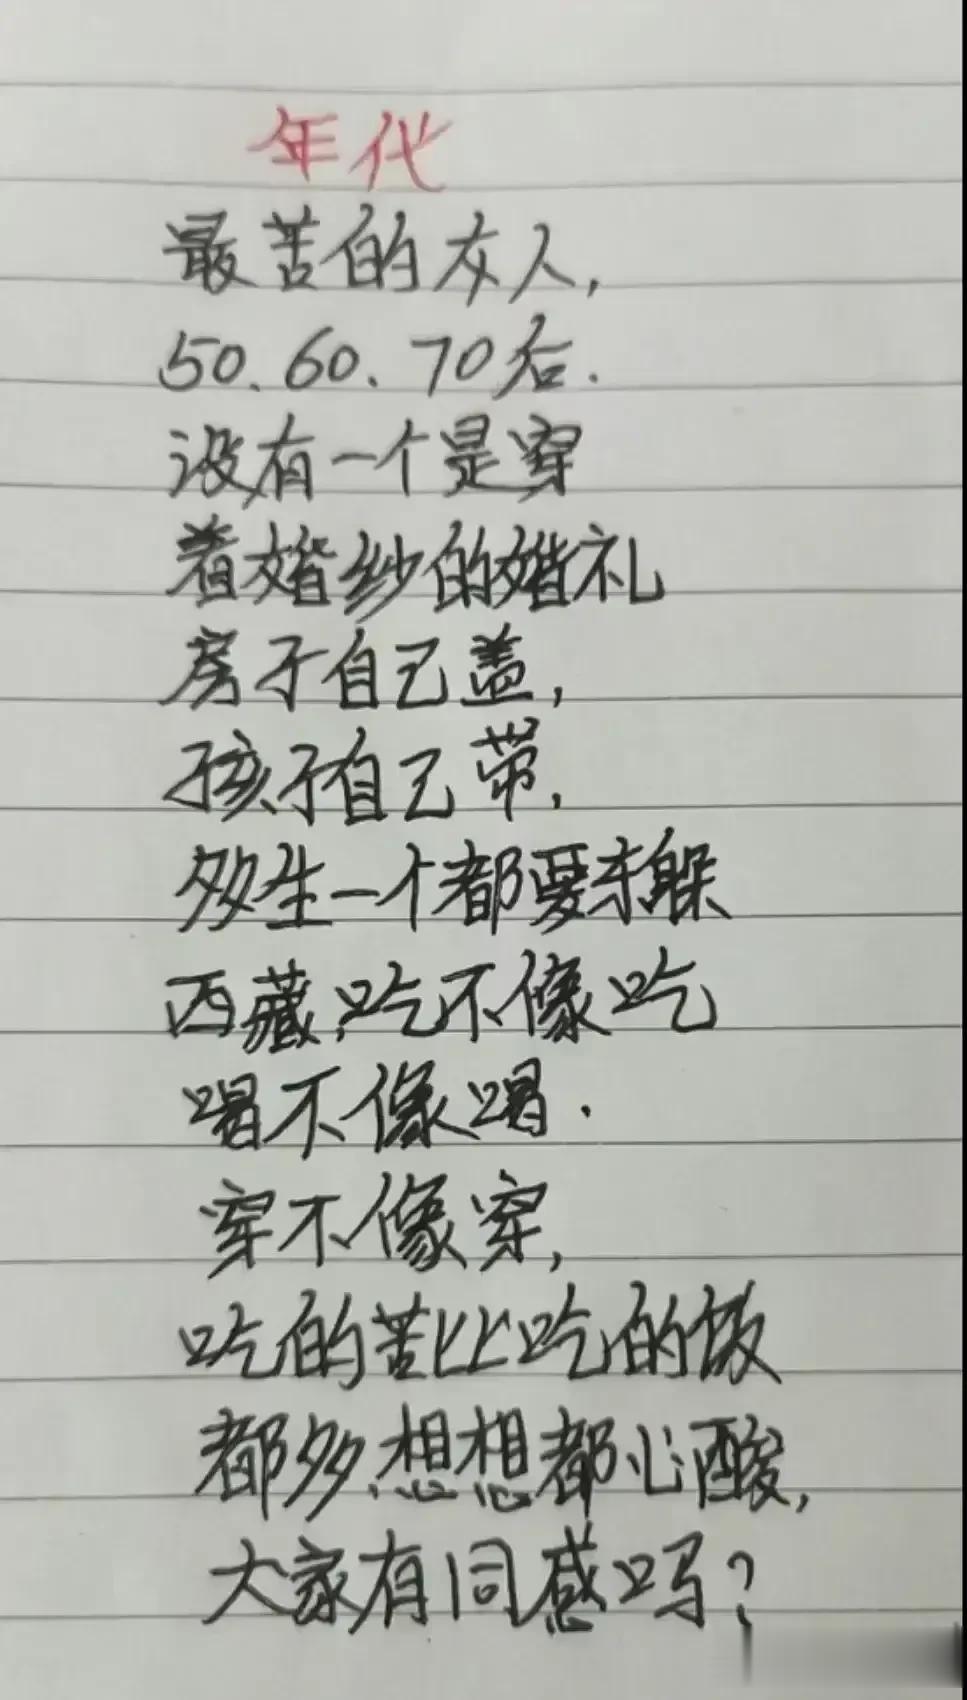 年代
最苦的女人,
50、60、70后.
没有一个是穿
着婚纱的婚礼
房子自己盖,
孩子自己带,
多生一个都要东躲
西藏,吃不像吃
喝不像喝.
穿不像穿,
吃的苦比吃的饭
都多,想想都心酸,
大家有同感吗?